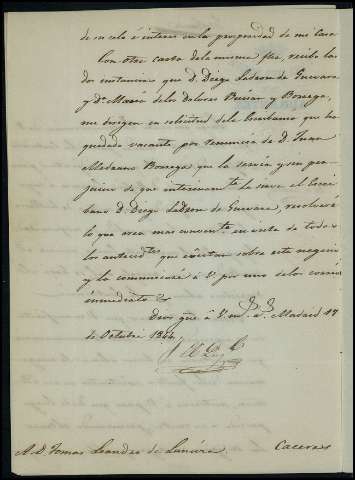 de su celo é interes en la prosperidad de mi Casa
Con otra carta de la misma fha, recibo las
dos instancias que D. Diego Ladron de Guevara
y Dª Maria de los Dolores y Borrega,
me dirigen en solicitud de la Escribania que ha
quedado vacante por renuncia de D. Juan
Medrano Borrega que la servia y sin per-
juicio de que interinamte la sirva el Escri-
bano D. Diego Ladron de Guevara, resolveré
lo que crea mas convente en vista de todos
los antecedtes que existan sobre este negocio
y la comunicaré á V. por uno de los correos
inmediatos
Dios gue á V. ms. as. Madrid 17
de Octubre 1844
A D. Tomas Leandro de
Caceres